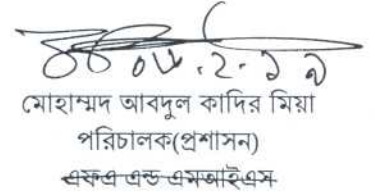 ০৬.২.১৯
মোহাম্মদ আবদুল কাদির মিয়া
পরিচালক(প্রশাসন)
এফএ এন্ড এমআইএস